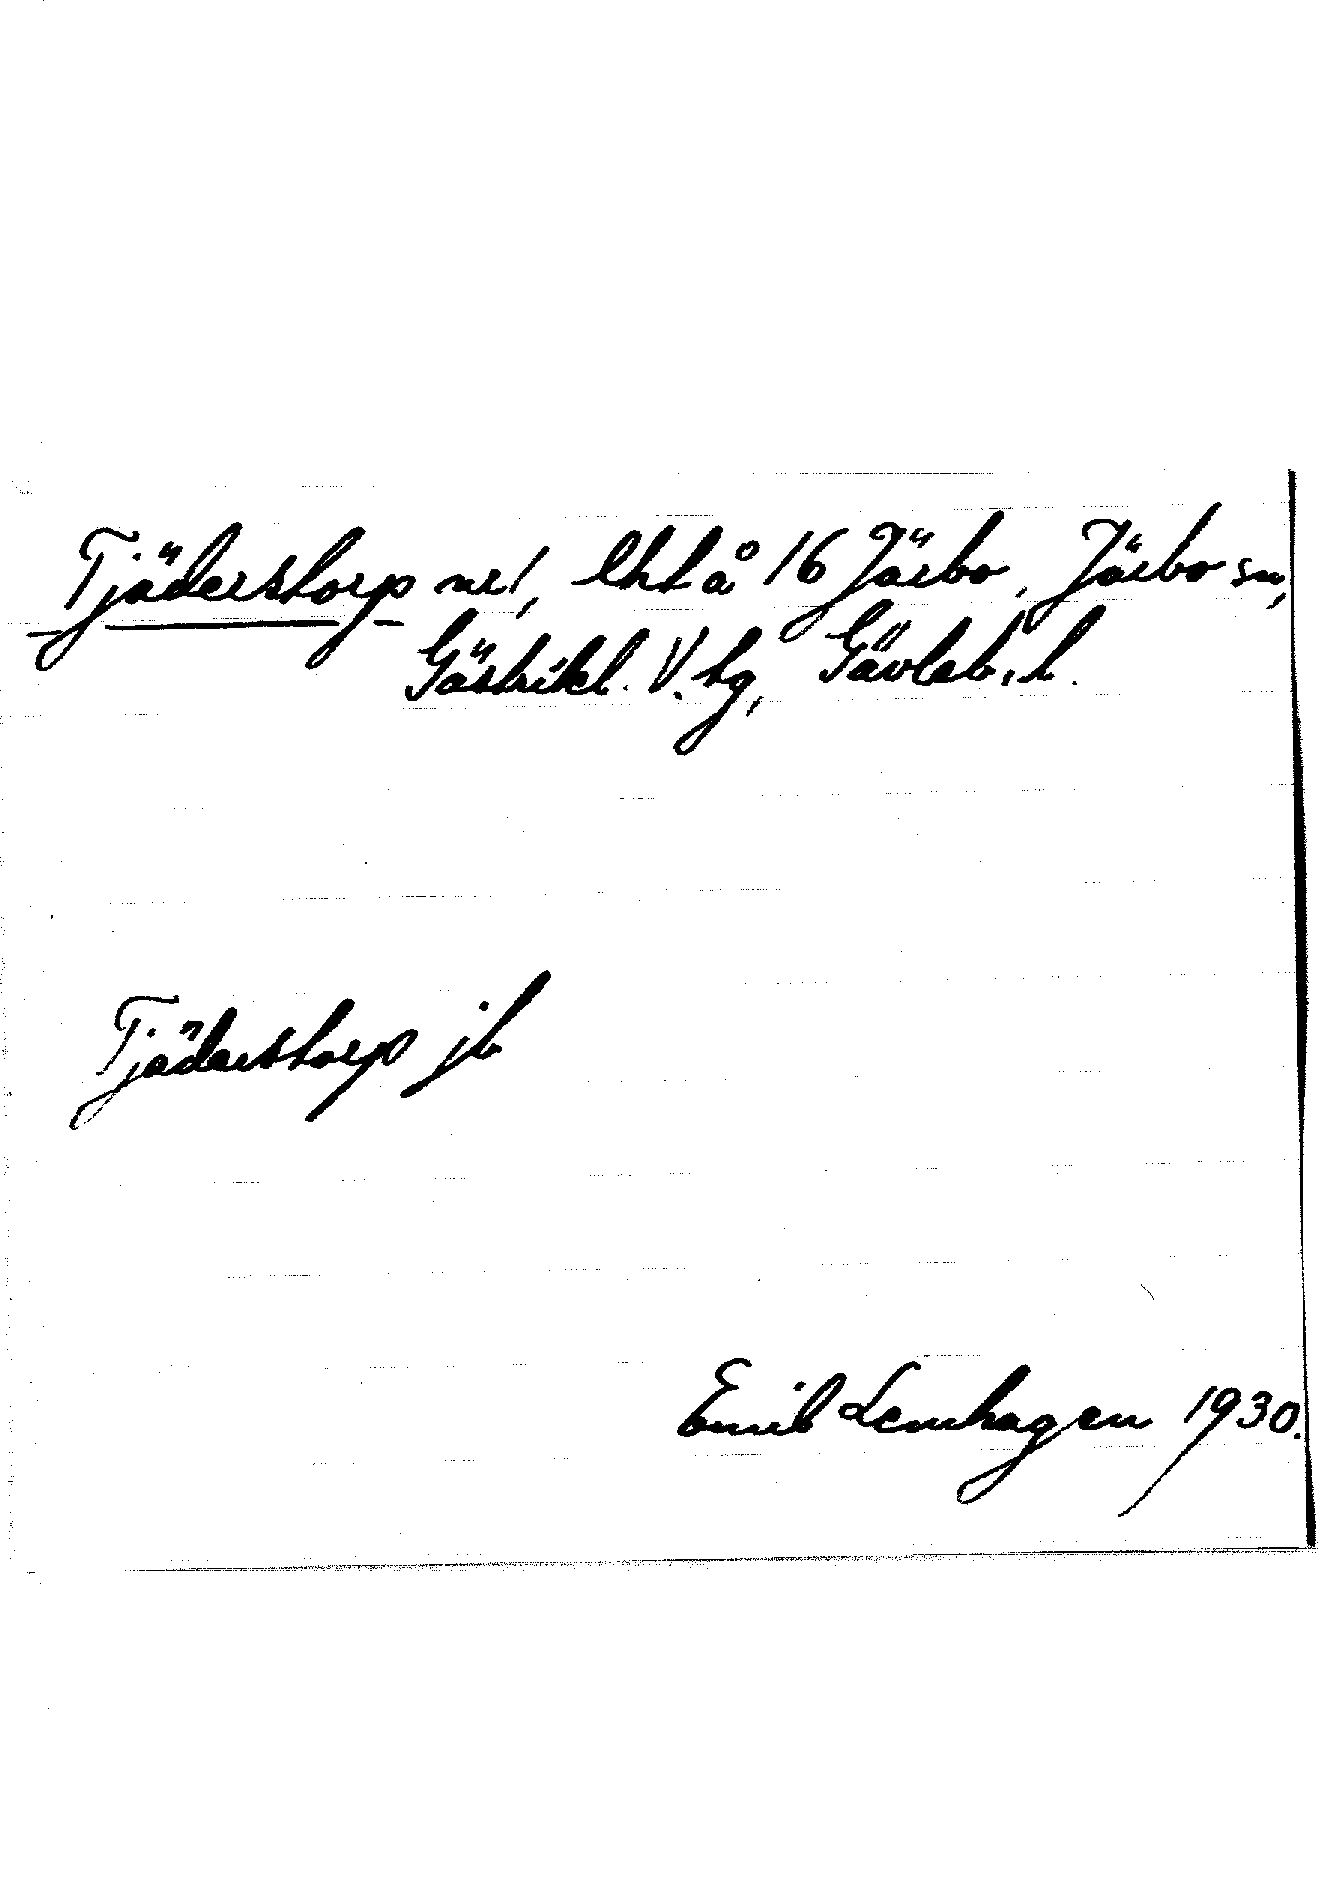 Tjäderstorp nr 1, lht å 16 Järbo, Järbo sn,
Gästrikl. V. tg, Gävleb. l.
Tjäderstorp jb
Emil Lenhagen 1930.